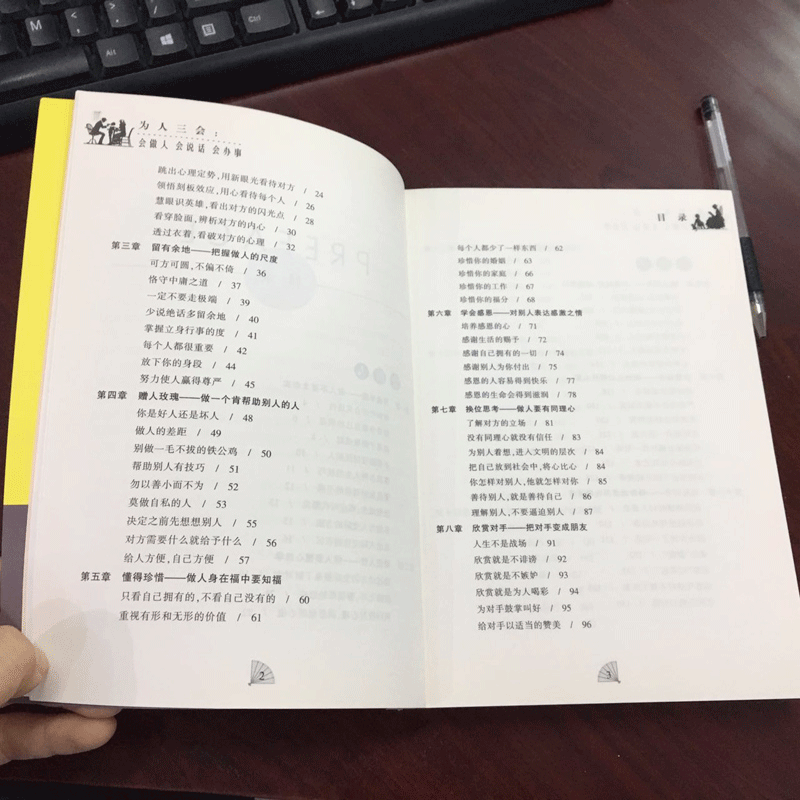 为人三会：
会做人 会说话 会办事
跳出心理定势，用新眼光看待对方 / 24
领悟刻板效应，用心看待每个人 / 26
慧眼识英雄，看出对方的闪光点 / 28
看穿脸面，辨析对方的内心 / 30
透过衣着，看破对方的心理 / 32
第三章 留有余地——把握做人的尺度
可方可圆，不偏不倚 / 36
恪守中庸之道 / 37
一定不要走极端 / 39
少说绝话多留余地 / 40
掌握立身行事的度 / 41
每个人都很重要 / 42
放下你的身段 / 44
努力使人赢得尊严 / 45
第四章 赠人玫瑰——做一个肯帮助别人的人
你是好人还是坏人 / 48
做人的差距 / 49
别做一毛不拔的铁公鸡 / 50
帮助别人有技巧 / 51
勿以善小而不为 / 52
莫做自私的人 / 53
决定之前先想想别人 / 55
对方需要什么就给予什么 / 56
给人方便，自己方便 / 57
第五章 懂得珍惜——做人身在福中要知福
只看自己拥有的，不看自己没有的 / 60
重视有形和无形的价值 / 61
2
目录
每个人都少了一样东西 / 62
珍惜你的婚姻 / 63
珍惜你的家庭 / 66
珍惜你的工作 / 67
珍惜你的福分 / 68
第六章 学会感恩——对别人表达感激之情
培养感恩的心 / 71
感谢生活的赐予 / 72
感谢自己拥有的一切 / 74
感谢别人为你付出 / 75
感恩的人容易得到快乐 / 77
感恩的生命会得到滋润 / 78
第七章 换位思考——做人要有同理心
了解对方的立场 / 81
没有同理心就没有信任 / 83
为别人着想，进入文明的层次 / 84
把自己放到社会中，将心比心 / 84
你怎样对别人，他就怎样对你 / 85
善待别人，就是善待自己 / 86
理解别人，不要逼迫别人 / 87
第八章 欣赏对手——把对手变成朋友
人生不是战场 / 91
欣赏就是不诽谤 / 92
欣赏就是不嫉妒 / 93
欣赏就是为人喝彩 / 94
为对手鼓掌叫好 / 95
给对手以适当的赞美 / 96
3